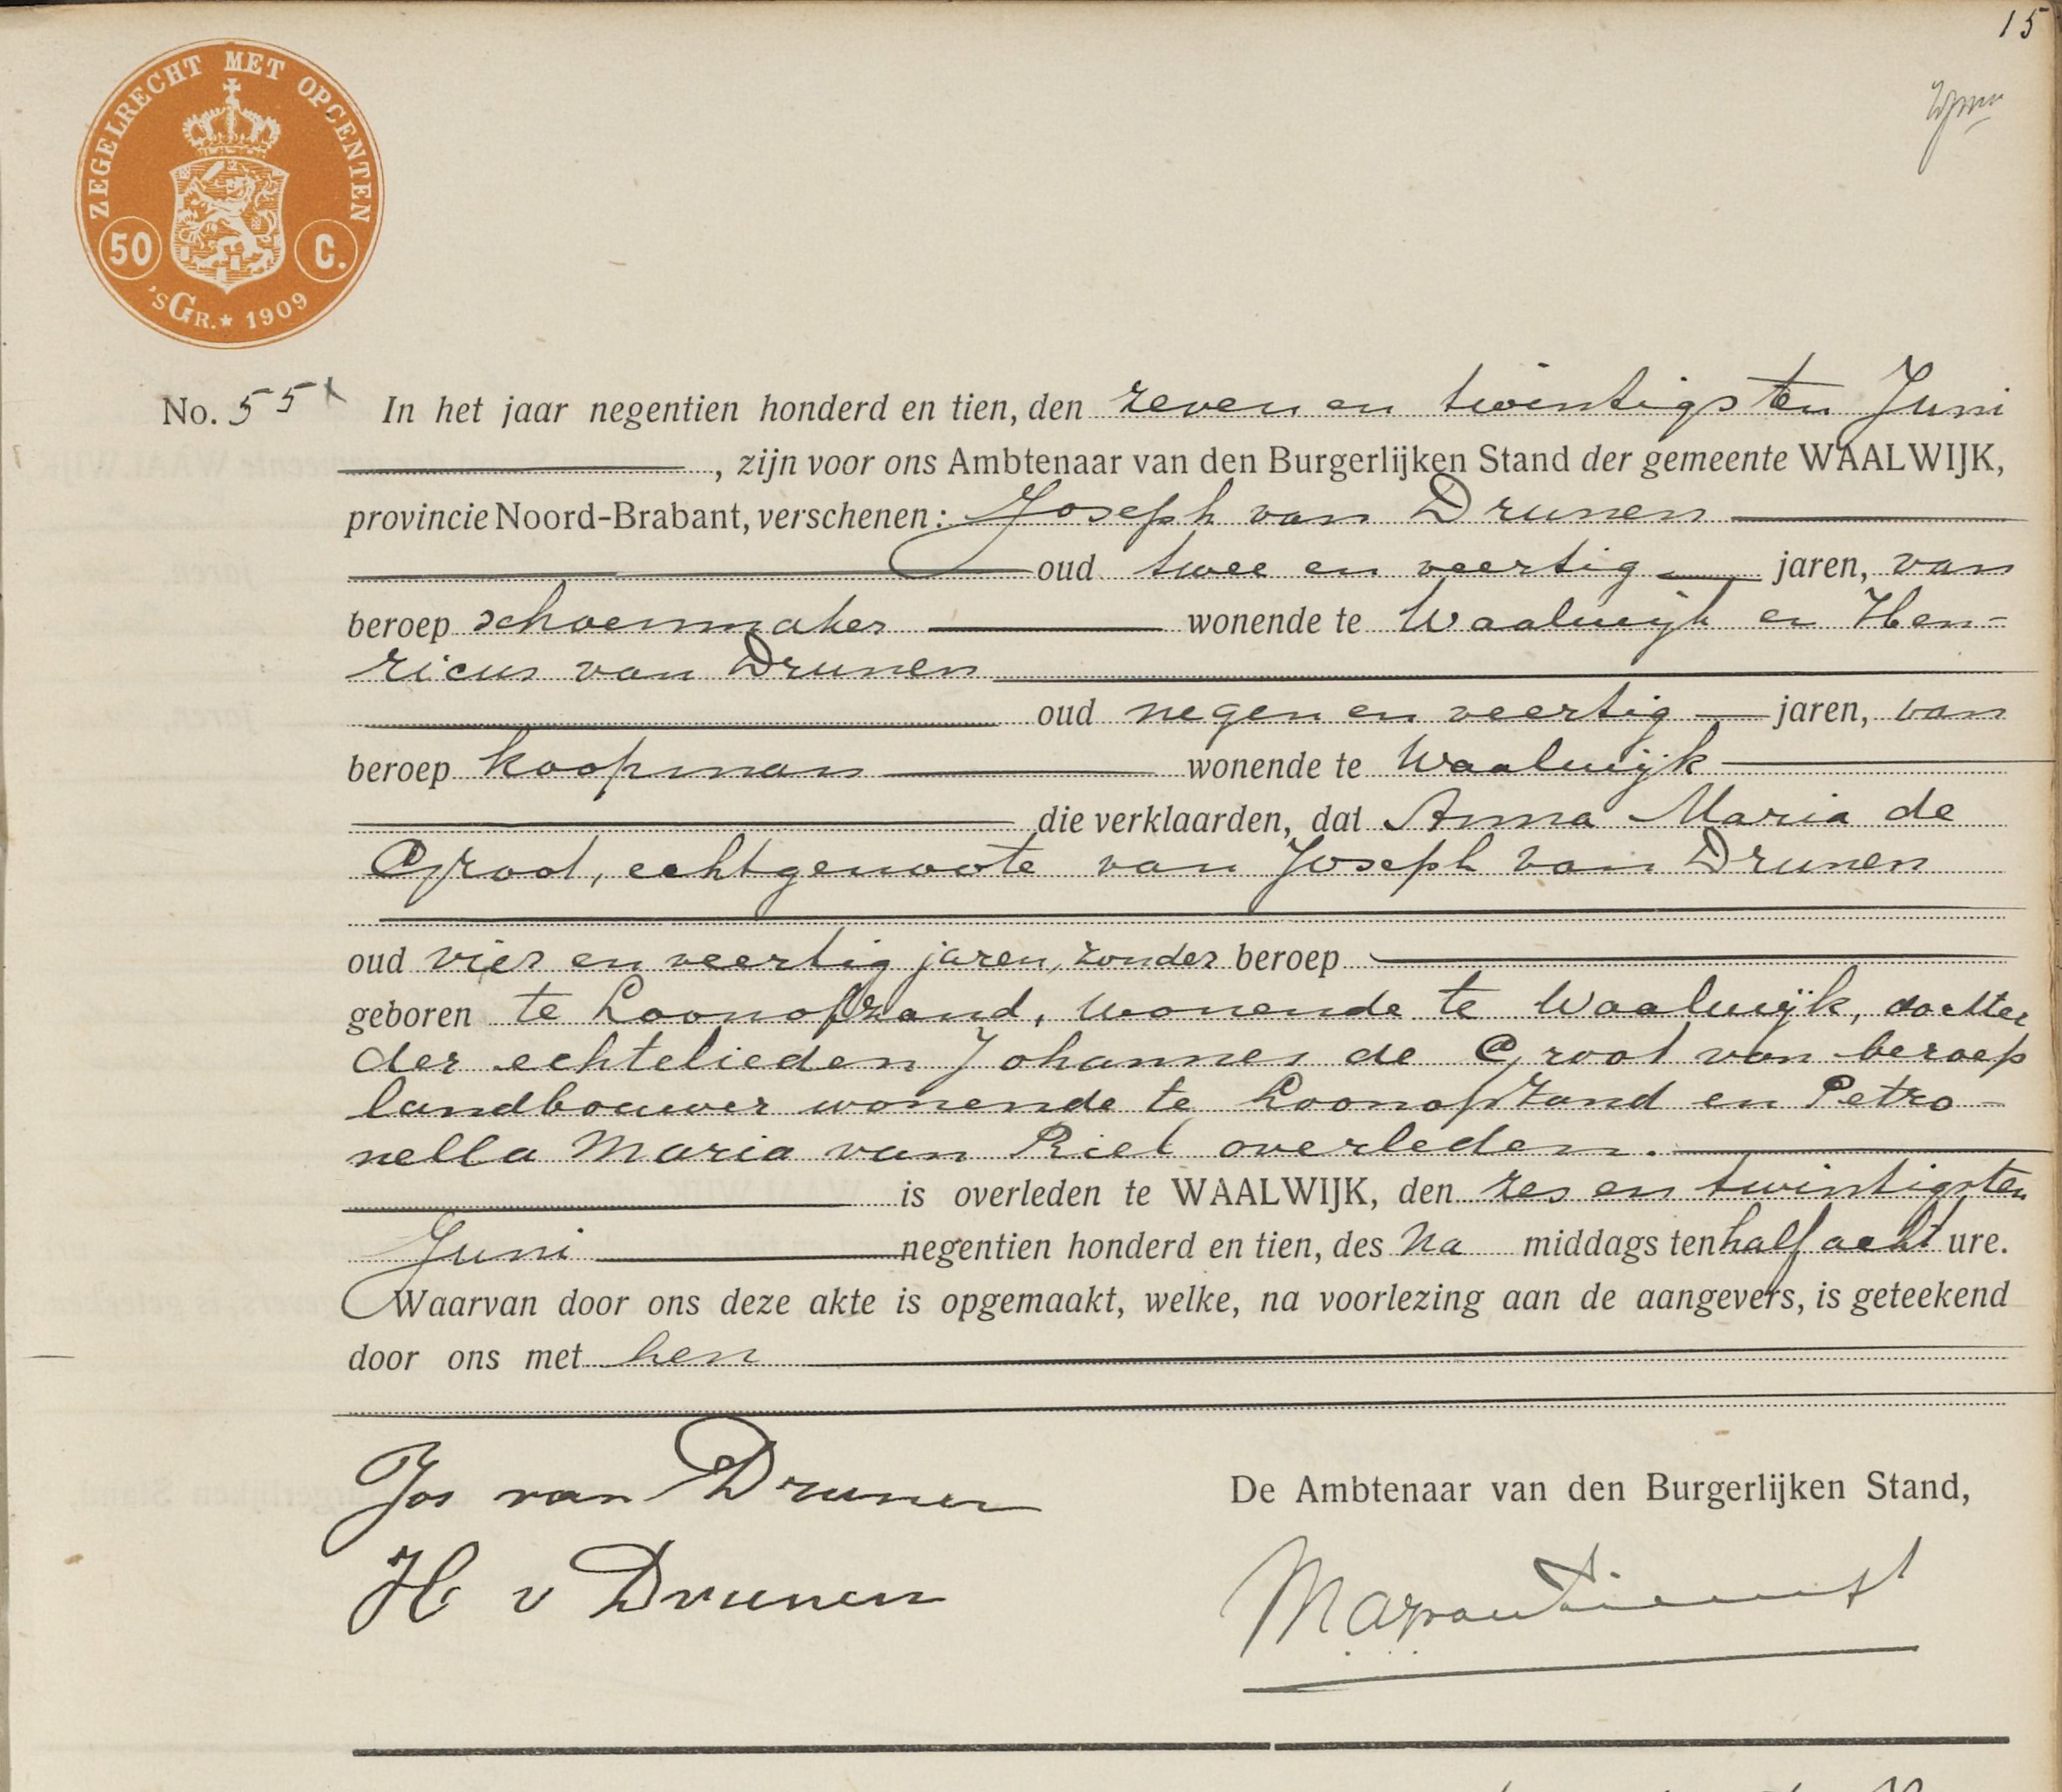 15
ZEGELRECHT MET OPCENTEN
50 C.
'sGR.★ 1909
No. 55 In het jaar negentien honderd en tien, den zeven en twintigsten Juni
, zijn voor ons Ambtenaar van den Burgerlijken Stand der gemeente WAALWIJK,
provincie Noord-Brabant, verschenen: Joseph van Drunen
oud twee en veertig jaren, van
beroep schoenmaker wonende te Waalwijk en Hen-
ricus van Drunen
oud negen en veertig jaren, van
beroep koopman wonende te Waalwijk
die verklaarden, dat Anna Maria de
Groot, echtgenoote van Joseph van Drunen
oud vier en veertig jaren, zonder beroep
geboren te Loonopzand, wonende te Waalwijk, dochter
der echtelieden Johannes de Groot van beroep
landbouwer wonende te Loonopzand en Petro-
nella Maria van Riel overleden.
is overleden te WAALWIJK, den zes en twintigsten
Juni negentien honderd en tien, des na middags ten half acht ure.
Waarvan door ons deze akte is opgemaakt, welke, na voorlezing aan de aangevers, is geteekend
door ons met hen
Jos van Drunen
De Ambtenaar van den Burgerlijken Stand,
H v Drunen